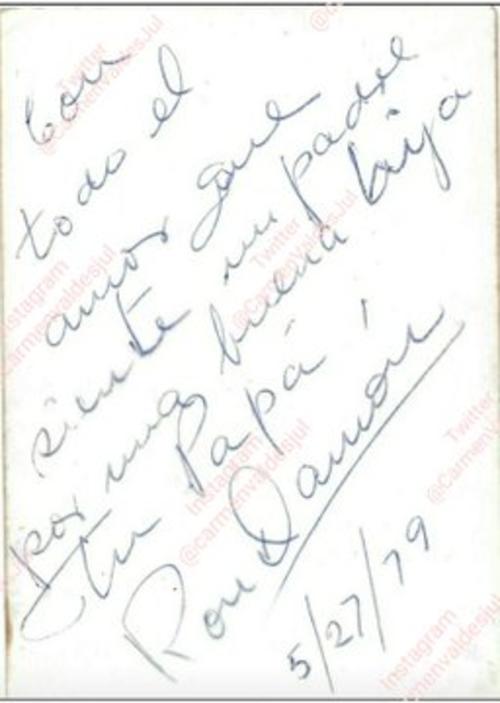 Con
todo el
amor que
siente un padre
por una buena hija
tu Papá
Ron Damon
5/27/79
Twitter
@Carmenvaldesjul
Instagram
@Carmenvaldesjul
Twitter
@Carmenvaldesjul
Instagram
@carmenvaldesjul
Twitter
@Carmen
Instagram